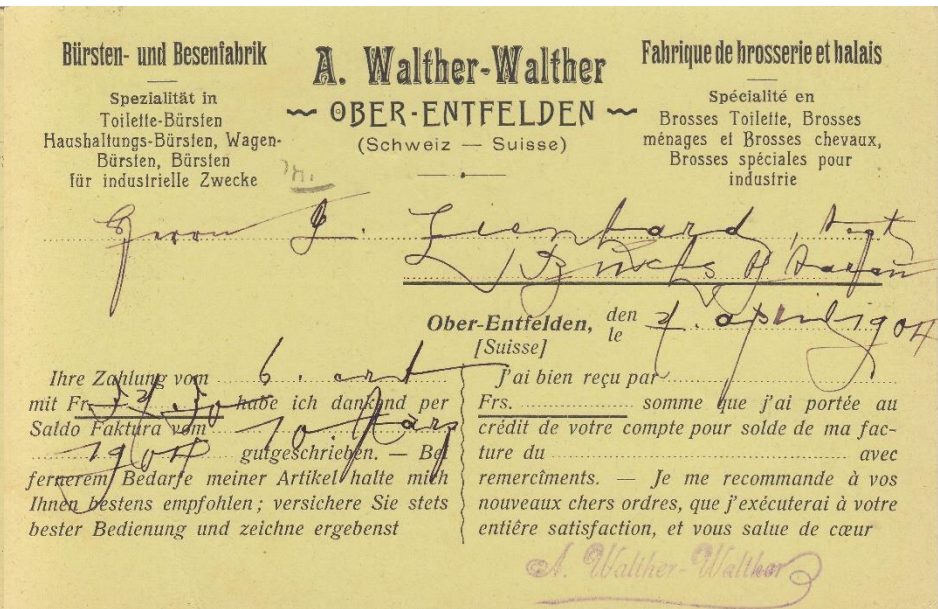 Bürsten- und Besenfabrik
Spezialität in
Toilette-Bürsten
Haushaltungs-Bürsten, Wagen-
Bürsten, Bürsten
für industrielle Zwecke
A. Walther-Walther
OBER-ENTFELDEN
(Schweiz — Suisse)
Fabrique de brosserie et balais
Spécialité en
Brosses Toilette, Brosses
ménages et Brosses chevaux,
Brosses spéciales pour
industrie
Herrn Lienhard,
Buchs b/ Aarau
Ober-Entfelden, den 7. April 1904
le
[Suisse]
Ihre Zahlung vom 6. crt
mit Fr. habe ich dankend per
Saldo Faktura vom 10 März
1904 gutgeschrieben. — Bei
fernerem Bedarfe meiner Artikel halte mich
Ihnen bestens empfohlen; versichere Sie stets
bester Bedienung und zeichne ergebenst
J'ai bien reçu par
Frs. somme que j'ai portée au
crédit de votre compte pour solde de ma fac-
ture du avec
remercîments. — Je me recommande à vos
nouveaux chers ordres, que j'exécuterai à votre
entière satisfaction, et vous salue de cœur
A. Walther-Walther